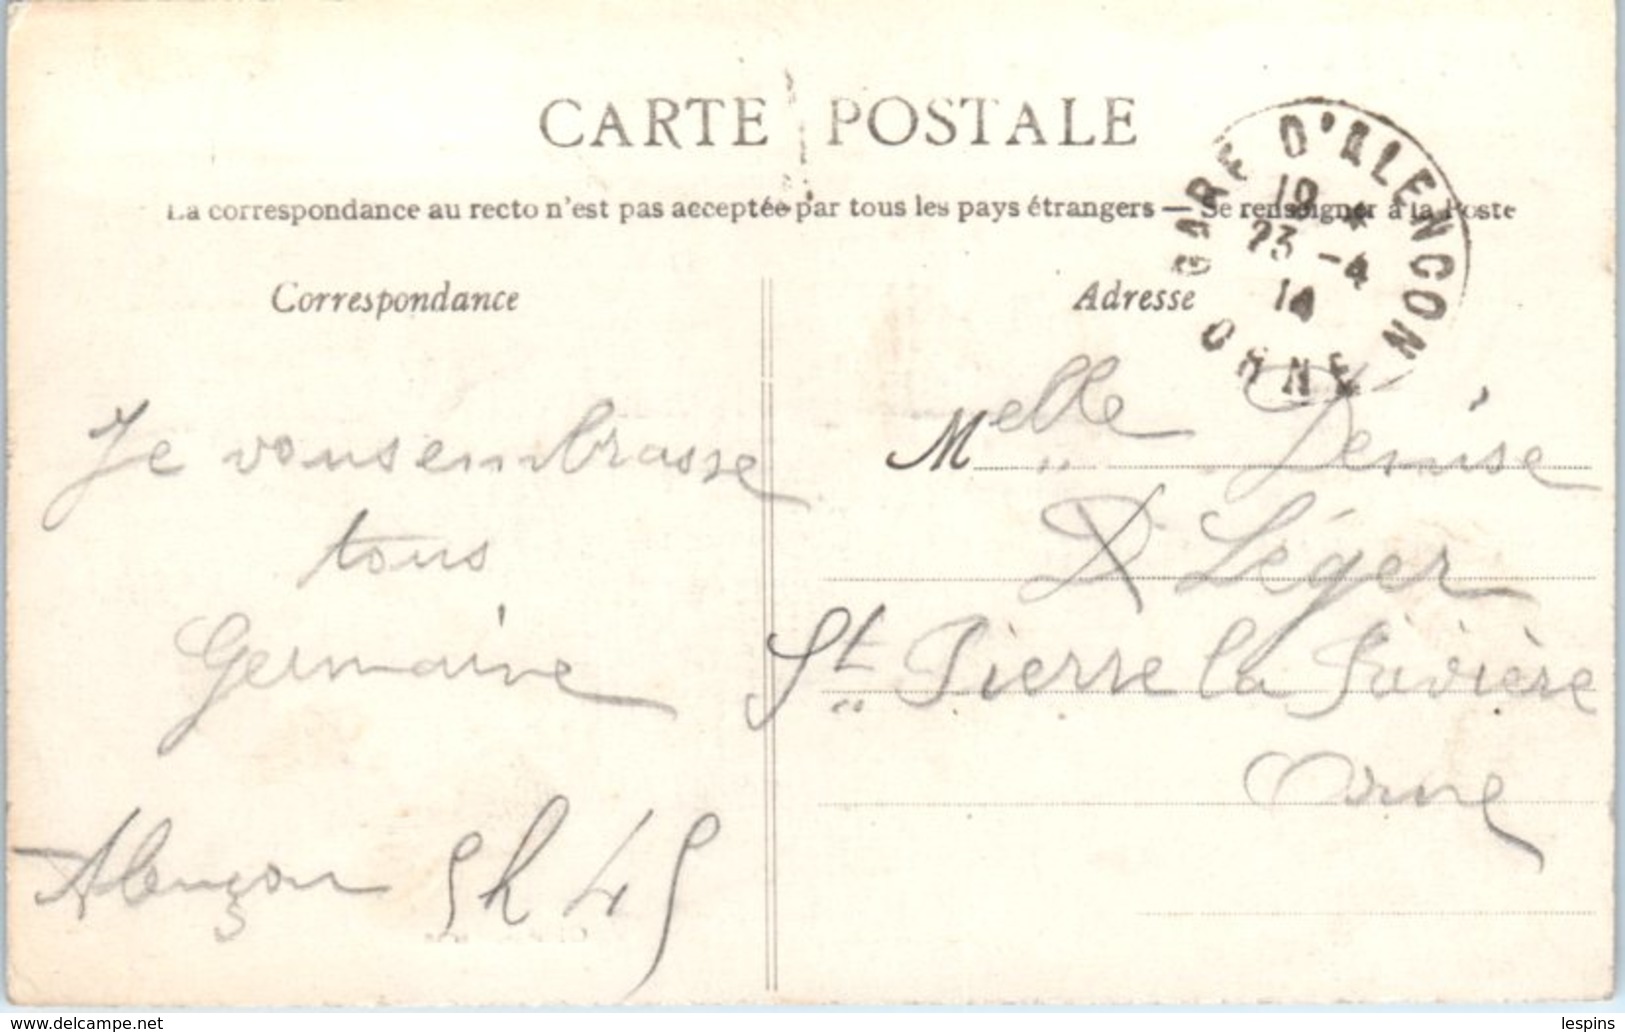 CARTE POSTALE
La correspondance au recto n'est pas acceptée par tous les pays étrangers — Se renseigner à la Poste
GARE D'ALENÇON
10 *
23 - 4
14
ORNE
Correspondance
Je vous embrasse
tous
Germaine
Alençon 5h 45
Adresse
Melle Denise
Léger
St Pierre la Rivière
Orne
www.delcampe.net
lespins